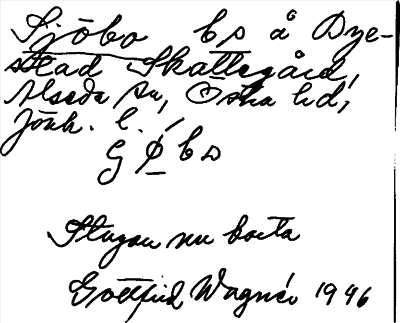 Sjöbo bs å Dye-
stad Skattegård,
Alseda sn, Östra hd,
Jönk. l.
G Ø bs
Stugan nu borta
Gottfrid Wagnér 1946